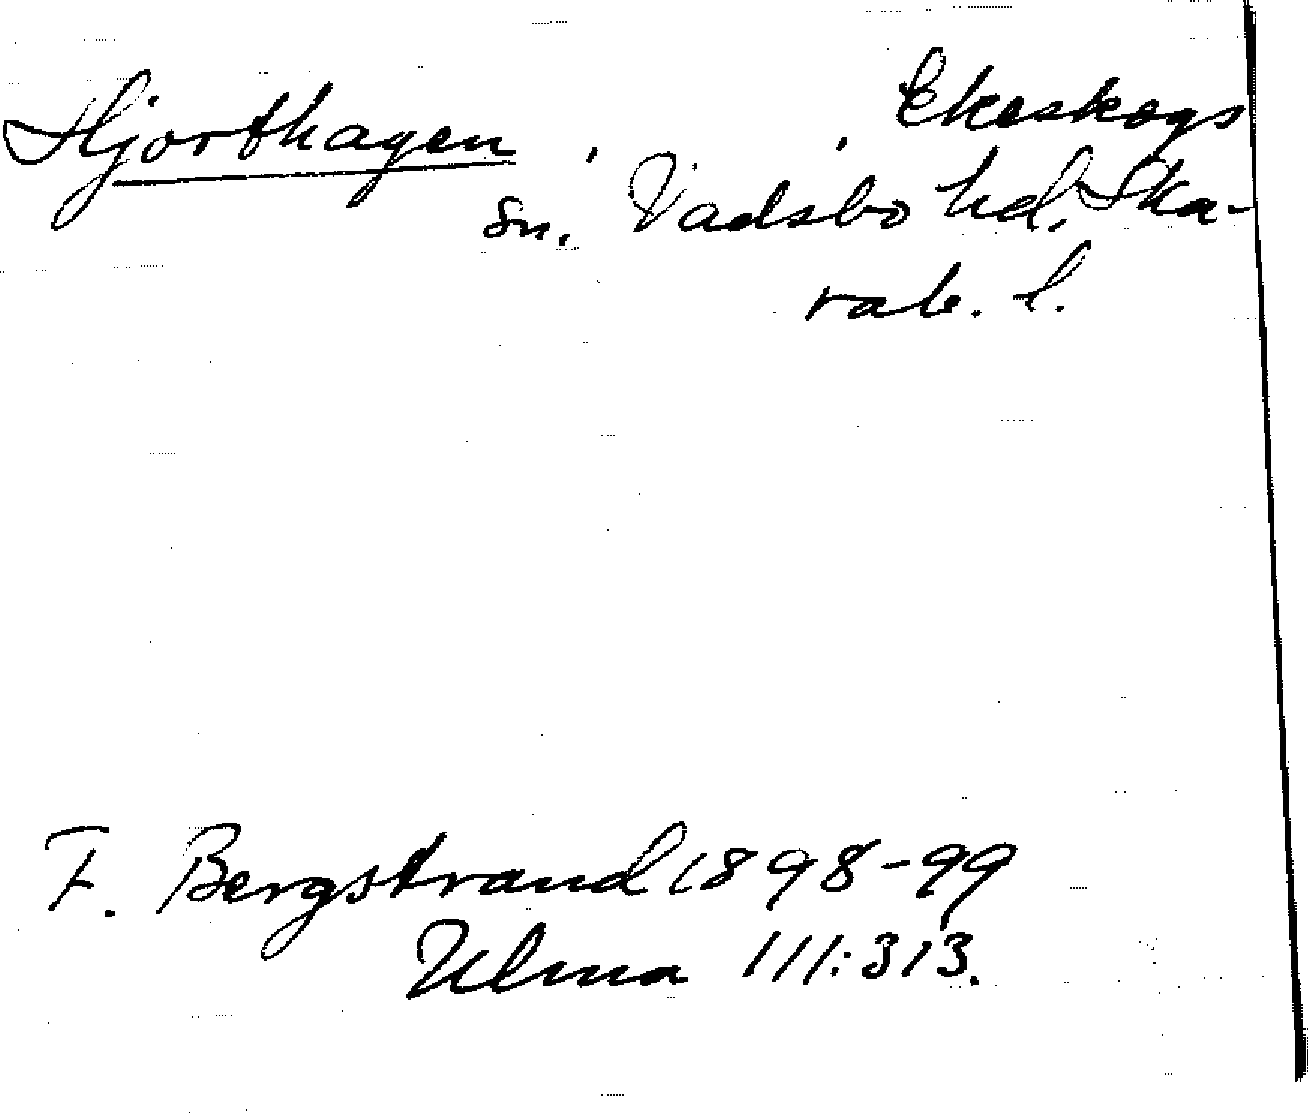 Hjorthagen, , Ekeskogs
sn. Vadsbo hd. Ska-
rab. l.
F. Bergstrand 1898-99
Ulma 111:313.